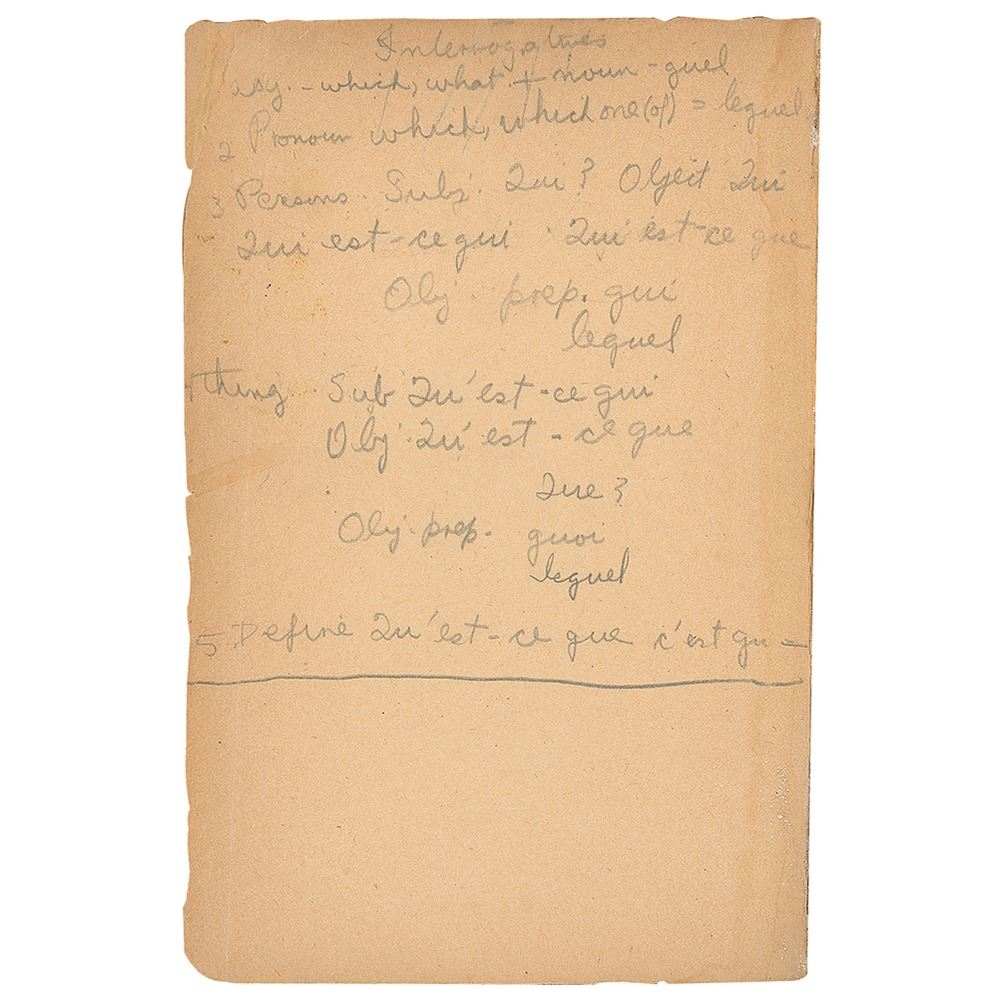 Interrogatives
adj. - which, what + noun - quel
2 Pronoun which, which one (of) = lequel
3 Persons. Subj. Qui? Object Qui
Qui est-ce qui. Qui est-ce que
Obj. prep. qui
lequel
thing. Sub Qu'est-ce qui
Obj. Qu'est-ce que
Que?
Obj. prep. quoi
lequel
5. Define Qu'est-ce que c'est qu=